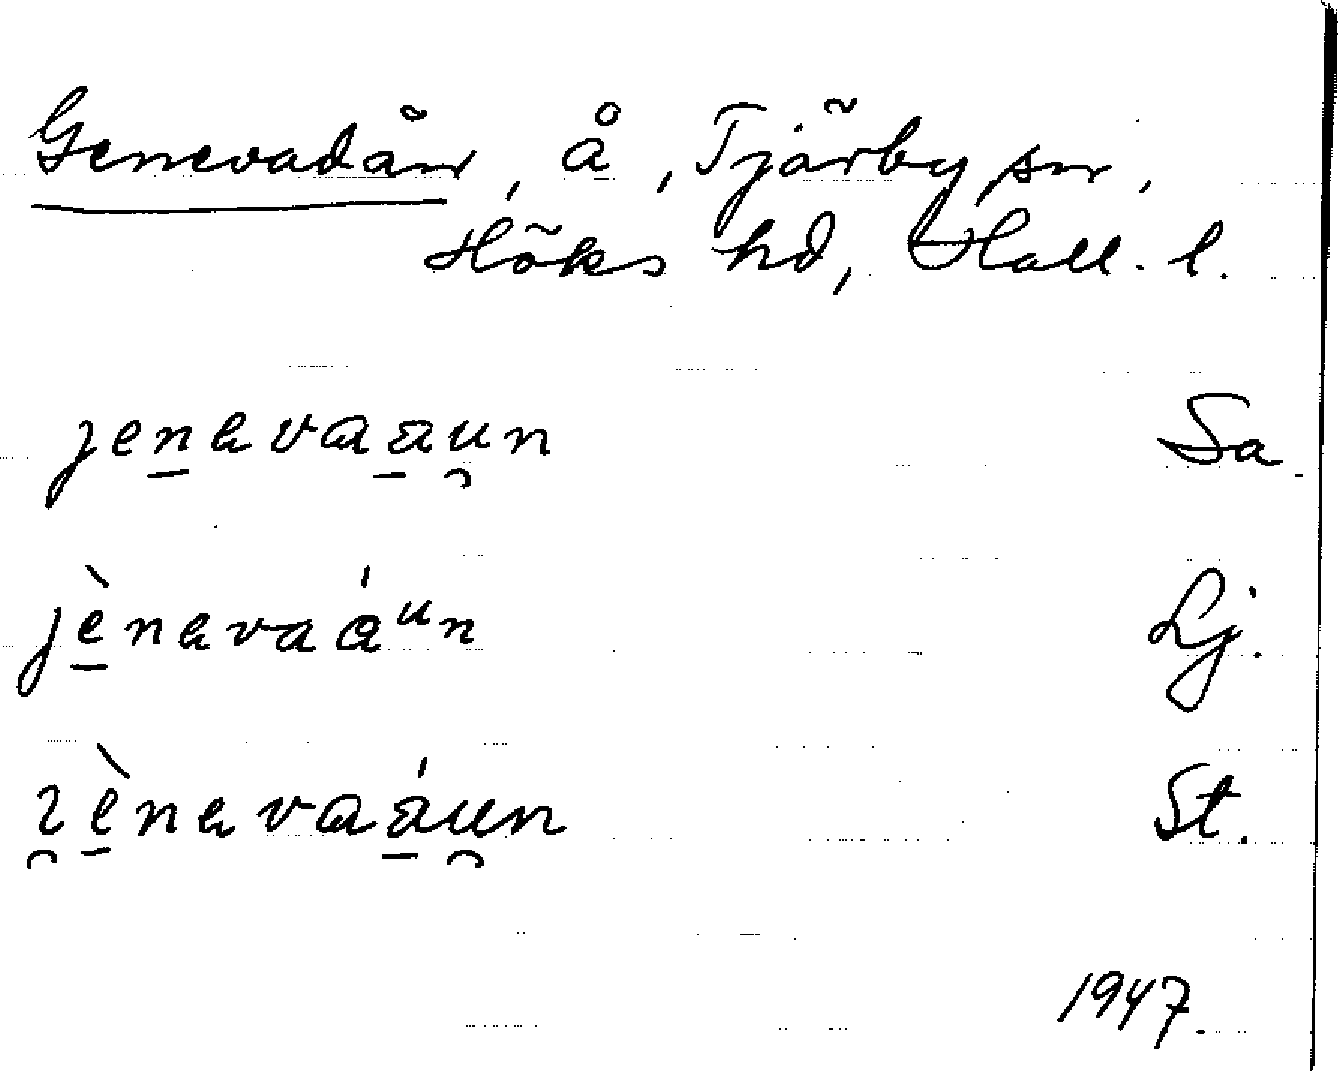 Genevadån, å, Tjärby sn,
Höks hd, Hall. l.
jenavaaun Sa.
jènavaáun Lj.
ɿènavaáun St.
1947.